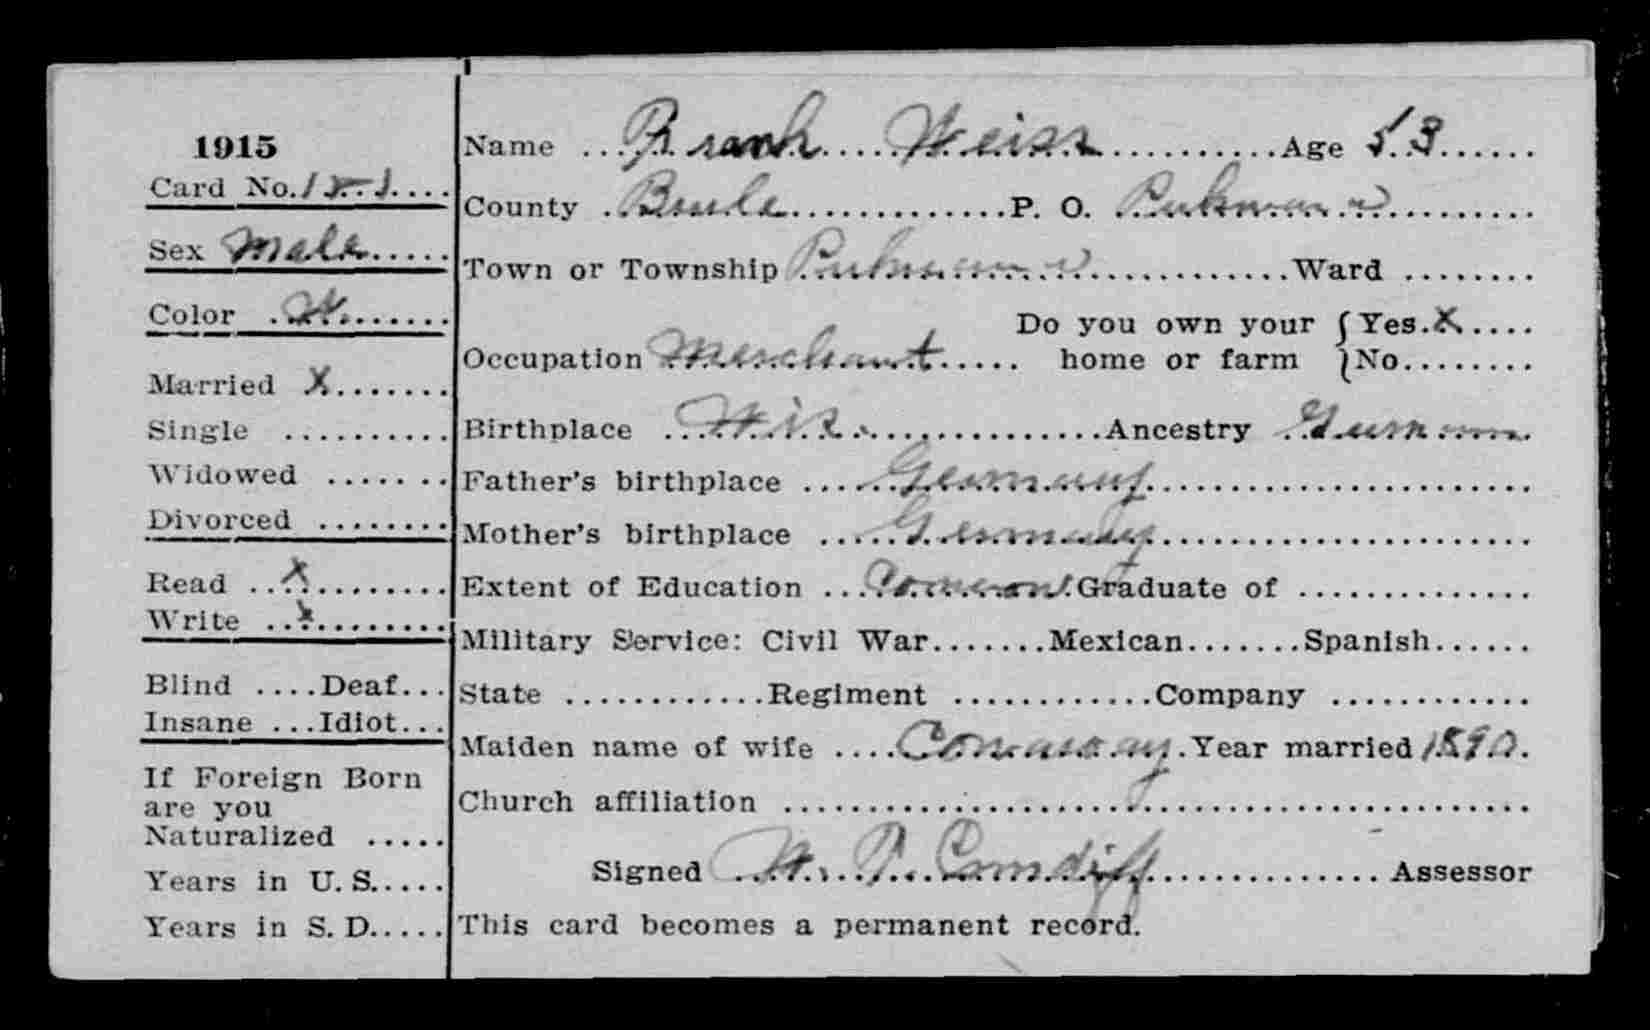 1915
Card No. 151
Sex Male
Color W.
Married X
Single
Widowed
Divorced
Read X
Write X
Blind ....Deaf...
Insane ...Idiot...
If Foreign Born
are you
Naturalized .....
Years in U. S.....
Years in S. D.....
Name Frank Weiss Age 53
County Brule P. O. Pukwana
Town or Township Pukwana Ward ........
Do you own your { Yes. X
Occupation Merchant home or farm { No........
Birthplace Wis. Ancestry German
Father's birthplace Germany
Mother's birthplace Germany
Extent of Education Common Graduate of ..............
Military Service: Civil War.......Mexican.......Spanish......
State ............Regiment ............Company ............
Maiden name of wife Conaway Year married 1890.
Church affiliation
Signed W. P. Cundiff Assessor
This card becomes a permanent record.